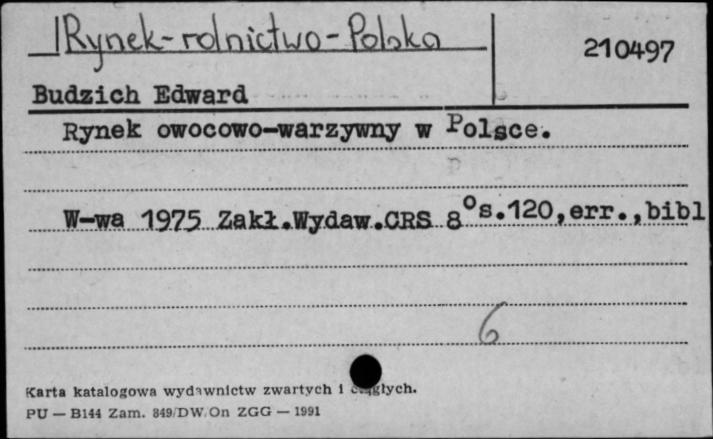 Rynek-rolnictwo-Polska
210497
Budzich Edward
Rynek owocowo-warzywny w Polsce.
W-wa 1975 Zakł.Wydaw.CRS 8° s.120,err.,bibl
6
Karta katalogowa wydawnictw zwartych i ciągłych.
PU — B144 Zam. 849/DW/On ZGG — 1991